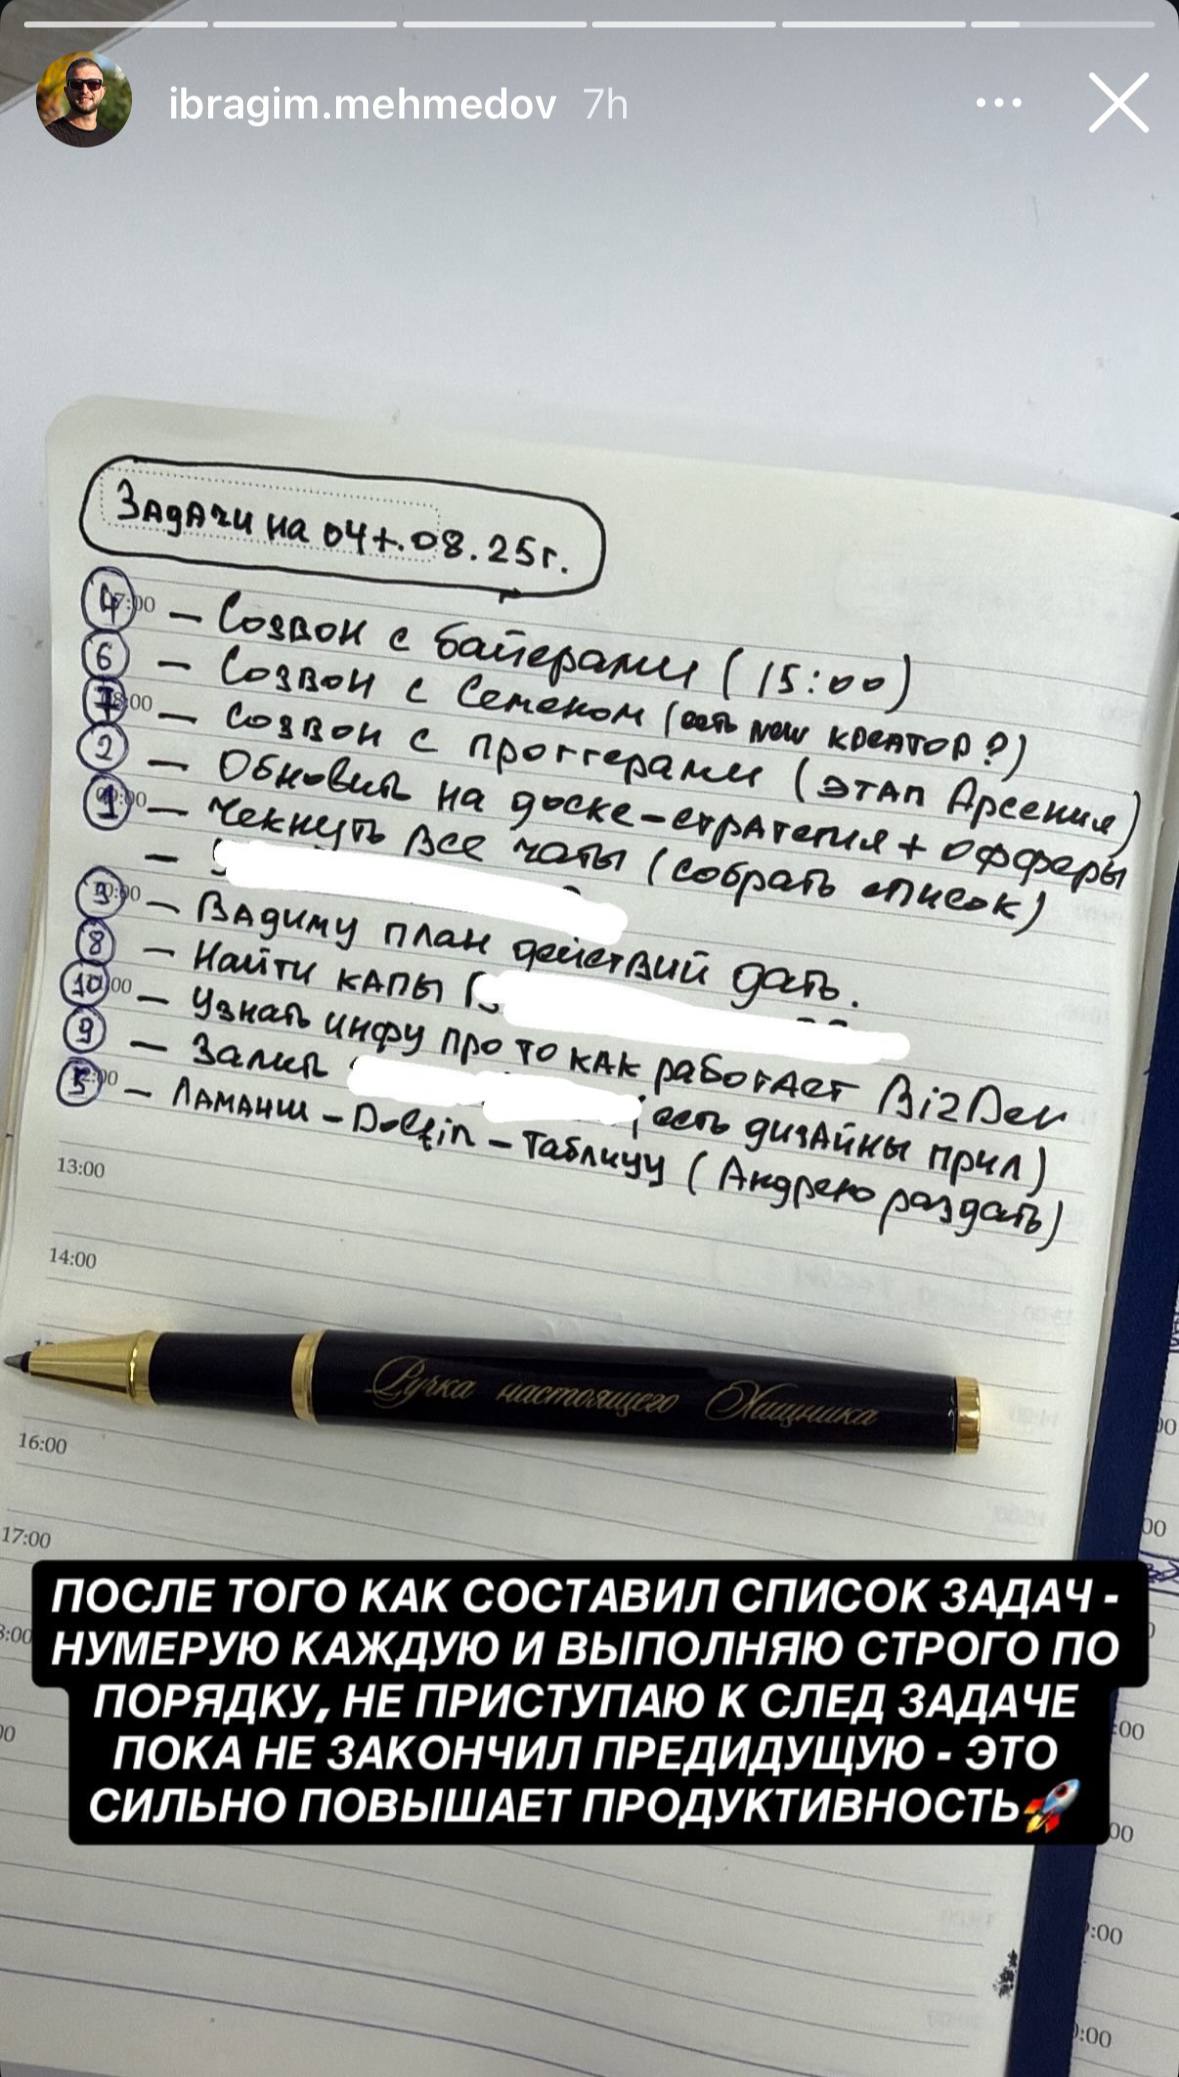 ibragim.mehmedov 7h
Задачи на 04.08.25г.
4 – Созвон с байерами (15:00)
6 – Созвон с Семеном (есть new креатор?)
7 – Созвон с проггерами (этап Арсения)
2 – Обновить на доске – стратегия + офферы
1 – Чекнуть все чаты (собрать список)
–
3 – Вадиму план действий дать.
8 – Найти капы
10 – Узнать инфу про то как работает BizDev
9 – Залив есть дизайны прил)
5 – Ламанш – Dolfin – Таблицу (Андрею раздать)
13:00
14:00
Ручка настоящего Хищника
16:00
17:00
ПОСЛЕ ТОГО КАК СОСТАВИЛ СПИСОК ЗАДАЧ -
НУМЕРУЮ КАЖДУЮ И ВЫПОЛНЯЮ СТРОГО ПО
ПОРЯДКУ, НЕ ПРИСТУПАЮ К СЛЕД ЗАДАЧЕ
ПОКА НЕ ЗАКОНЧИЛ ПРЕДИДУЩУЮ - ЭТО
СИЛЬНО ПОВЫШАЕТ ПРОДУКТИВНОСТЬ🚀